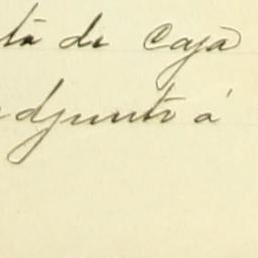 ta de Caja
adjunto á